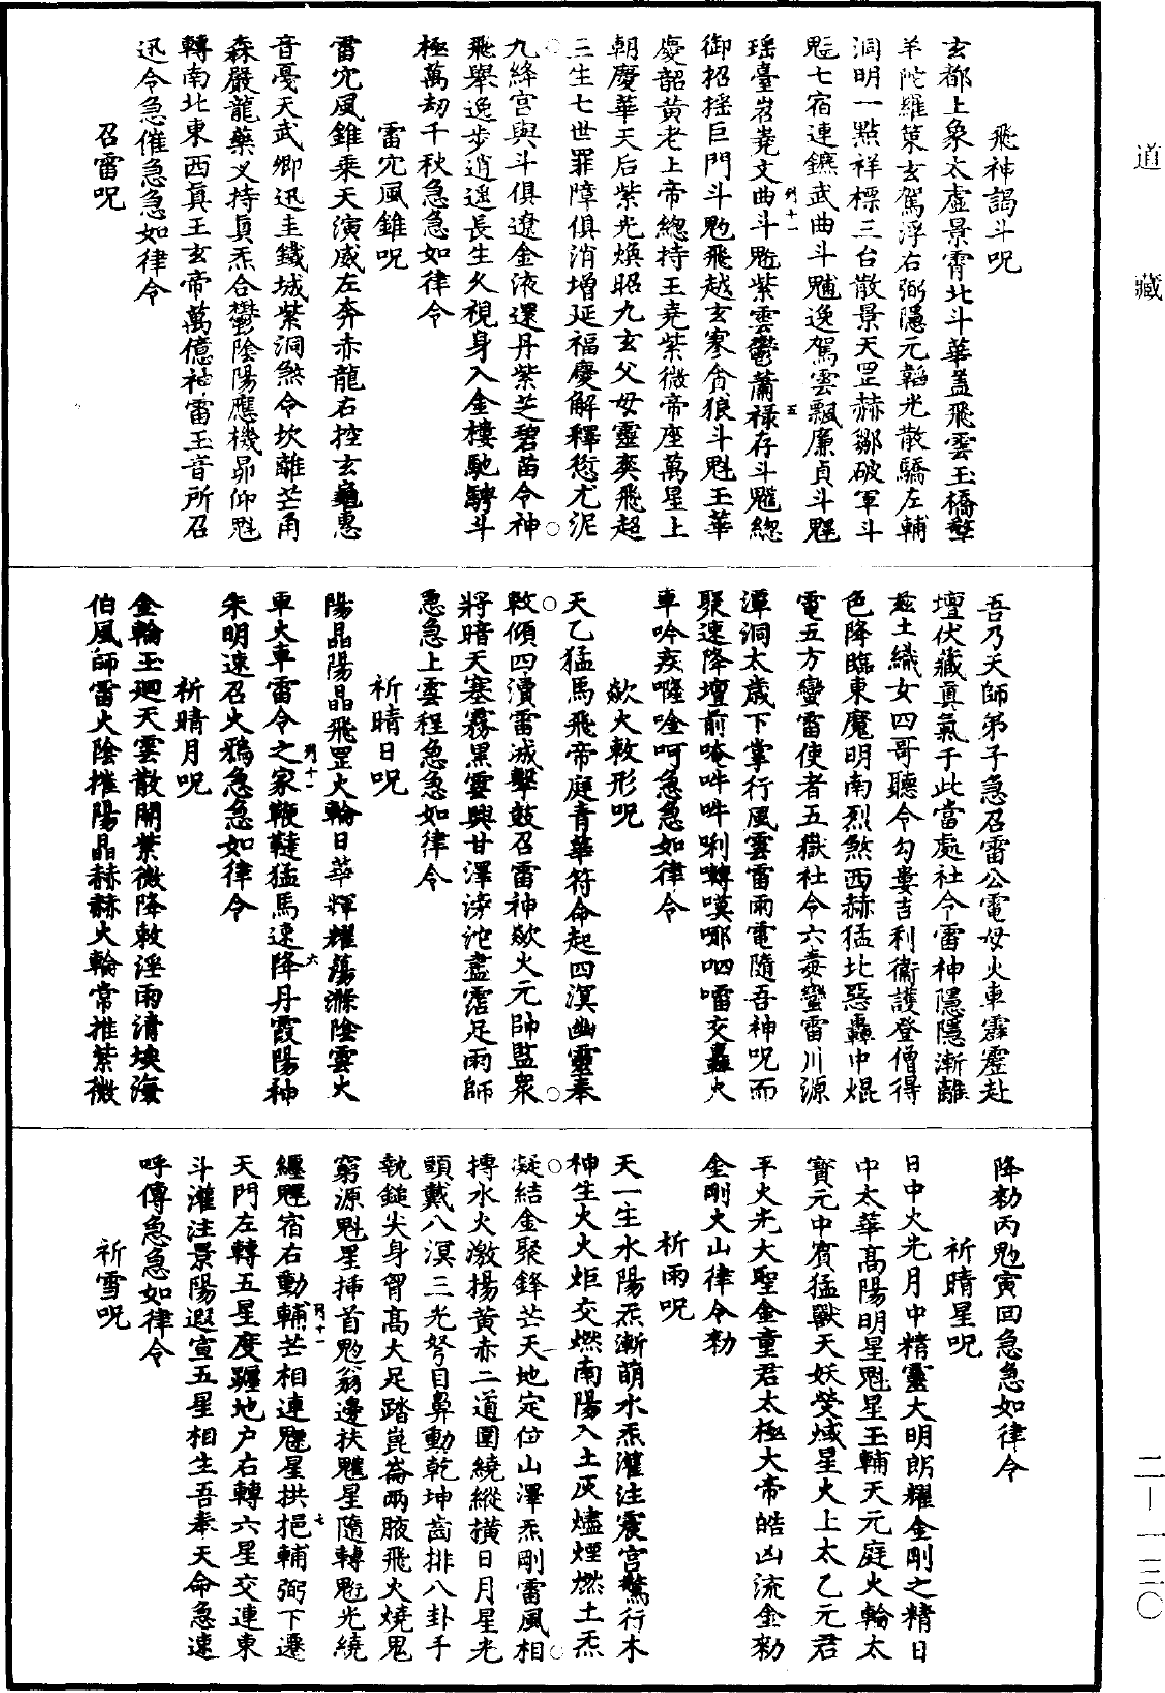 道藏
飛神謁斗呪
玄都上象太虛景霄北斗華蓋飛雲玉橋擎
羊陀羅策玄駕浮右弼隱元韜光散驕左輔
洞明一點祥標三台散景天罡赫鄒破軍斗
七宿連鑣武曲斗逸駕雲飄廉貞斗
瑤臺岧嶤文曲斗紫雲鬱蕭祿存斗總
御招搖巨門斗飛越玄寥貪狼斗魁玉華
慶韶黃老上帝總持玉堯紫微帝座萬星上
朝慶華天后紫光煥昭九玄父母靈爽飛超
三生七世罪障俱消增延福慶解釋愆尤泥
九絳宮與斗俱遼金液還丹紫芝碧苗令神
飛舉逸步逍遙長生久視身入金樓馳騁斗
極萬劫千秋急急如律令
雷穴風錐呪
雷穴風錐乘天演威左奔赤龍右控玄龜惠
音憂天武卿迅圭鐵城紫洞煞令坎離芒角
森嚴龍藥义持真炁合鬱陰陽應機昴仰魁
轉南北東西真王玄帝萬億神雷玉音所召
迅令急催急急如律令
召雷呪
吾乃天師弟子急召雷公電母火車霹靂赴
壇伏藏真氣于此當處社令雷神隱隱漸離
茲土織女四哥聽令勾婁吉利衞護登僧得
色降臨東魔明南烈煞西赫猛北惡轟中焜
電五方蠻雷使者五嶽社令六毒蠻雷川源
潭洞太歲下掌行風雲雷雨電隨吾神呪而
聚速降壇前唵吽吽唎囀嘆哪呬嚍交轟火
車吟疾㘕唫呵急急如律令
歘火敕形呪
天乙猛馬飛帝庭青華符命起四溟幽靈奉
敕傾四瀆雷減擊鼓召雷神歘火元帥監衆
將暗天塞霧黑雲興甘澤滂沱盡霑足雨師
急急上雲程急急如律令
祈晴日呪
陽晶陽晶飛罡火輪日華輝耀蕩滌陰雲火
車大車雷令之家鞭韃猛馬速降丹霞陽神
朱明速召火鴉急急如律令
祈晴月呪
金輪玉廻天雲散開紫微降敕淫雨清埃海
伯風師雷火陰摧陽晶赫赫火輪常推紫微
降勑丙寅回急急如律令
祈晴星呪
日中火光月中精靈大明朗耀金剛之精日
中太華高陽明星魁星玉輔天元庭火輪太
寳元中賓猛獸天妖熒惑星火上太乙元君
平火光大聖金童君太極大帝皓凶流金勑
金剛火山律令勑
祈雨呪
天一生水陽炁漸萌水炁灌注震宮驚行木
神生火火炬交燃南陽入土灰燼煙燃土炁
凝結金聚鋒芒天地定位山澤炁剛雷風相
摶水火激揚黃赤二道圍繞縱橫日月星光
頭戴八溟三光努目鼻動乾坤齒排八卦手
執鎚尖身胷高大足踏崑崙兩腋飛火燒鬼
窮源魁星揷首翁邊扶星隨轉光繞
纏宿右動輔芒相連星拱挹輔弼下遷
天門左轉五星度躔地户右轉六星交連東
斗灌注景陽遐宣五星相生吾奉天命急速
呼傳急急如律令
祈雪呪
二—一三〇